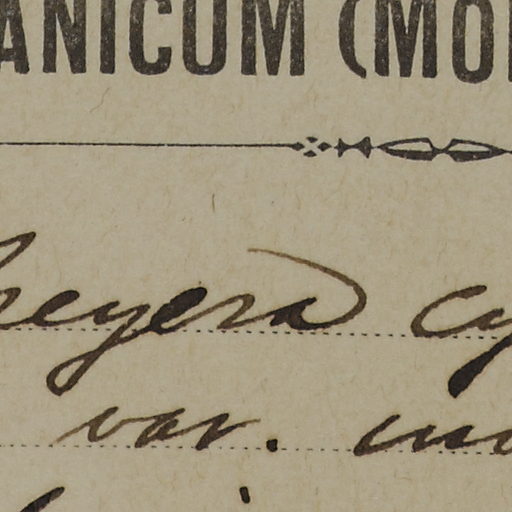 ANICUM (MO
heyera cy
var. ino